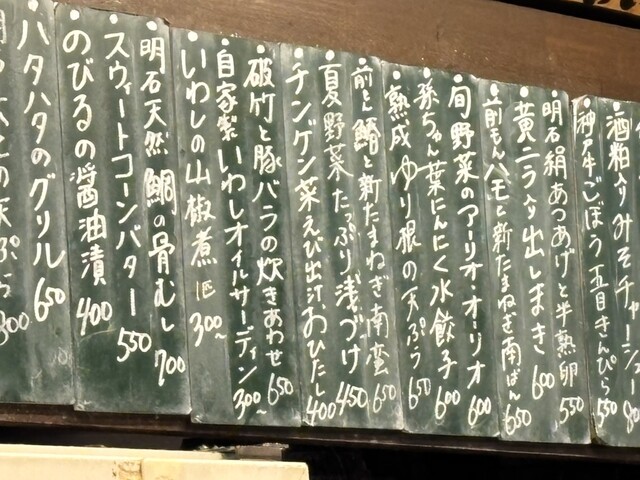 酒粕入りみそチャーシュー
神戸牛ごぼう五目きんぴら 550
明石絹あつあげと半熟卵 550
黄ニラ入り出しまき 600
前もん ハモと新たまねぎ南ばん 650
旬野菜のアーリオ・オーリオ 600
孫ちゃん葉にんにく水餃子 600
熟成ゆり根の天ぷら 650
鰆と新たまねぎ南蛮 650
夏野菜たっぷり浅づけ 450
チンゲン菜えび出汁おひたし 400
破竹と豚バラの炊きあわせ 650
自家製いわしオイルサーディン 300~
いわしの山椒煮 300~
明石天然鯛の骨むし 700
スウィートコーンバター 550
のびるの醤油漬 400
ハタハタのグリル 650
の天ぷら 300